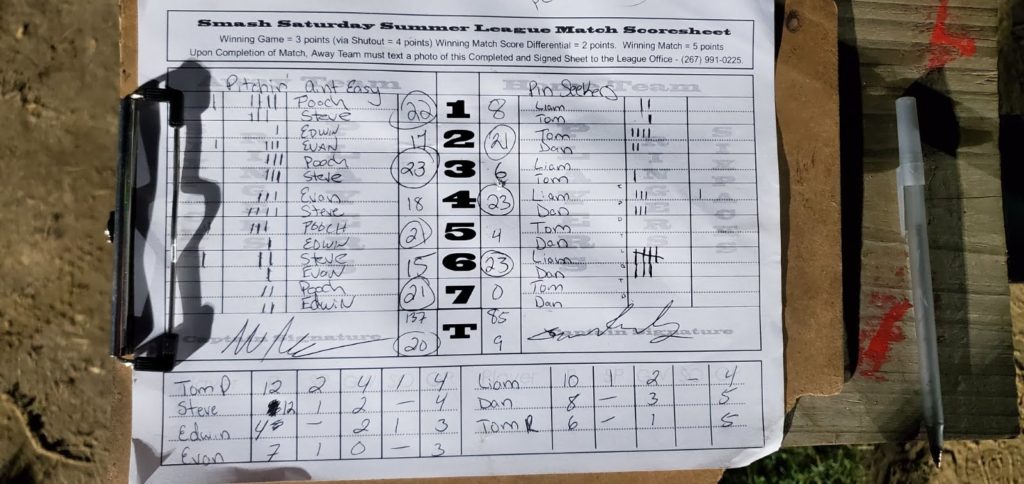 Smash Saturday Summer League Match Scoresheet
Winning Game = 3 points (via Shutout = 4 points) Winning Match Score Differential = 2 points. Winning Match = 5 points
Upon Completion of Match, Away Team must text a photo of this Completed and Signed Sheet to the League Office - (267) 991-0225.
Pitchin' aint Easy Pin Seekers
Pooch 22 1 8 Liam
Steve Tom
EDWIN 17 2 21 Tom
EVAN Dan
Pooch 23 3 6 Liam
Steve Tom
Evan 18 4 23 Liam
Steve Dan
POOCH 21 5 4 Tom
EDWIN Dan
Steve 15 6 23 Liam
Evan Dan
Pooch 21 7 0 Tom
EDWIN Dan
137 T 85
Captain Signature 20 9 Captain Signature
Tom P 12 2 4 1 4 Liam 10 1 2 - 4
Steve 12 1 2 - 4 Dan 8 - 3 5
Edwin 4 - 2 1 3 Tom R 6 - 1 5
Evan 7 1 0 - 3